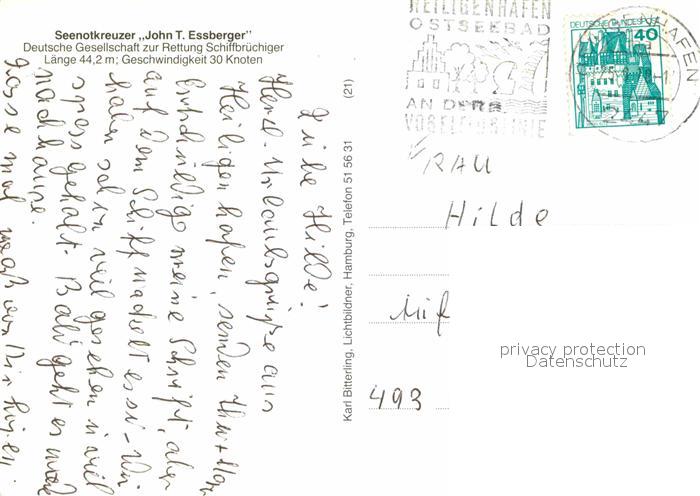 Seenotkreuzer „John T. Essberger"
Deutsche Gesellschaft zur Rettung Schiffbrüchiger
Länge 44,2 m; Geschwindigkeit 30 Knoten
Liebe Hilde!
Herzl. Urlaubsgrüße aus
Heiligenhafen, senden
Entschuldige meine Schrift, aber
auf dem Schiff wackelt es so. Wir
haben schon viel gesehen u. viel
Spass gehabt. Bald geht es wieder
nachhause.
Lasse mal was von Dir hören.
(21)
Karl Bitterling, Lichtbildner, Hamburg, Telefon 51 56 31
HEILIGENHAFEN
OSTSEEBAD
AN DER
VOGELFLUGLINIE
DEUTSCHE BUNDESPOST
40
HEILIGENHAFEN
FRAU
Hilde
493
privacy protection
Datenschutz